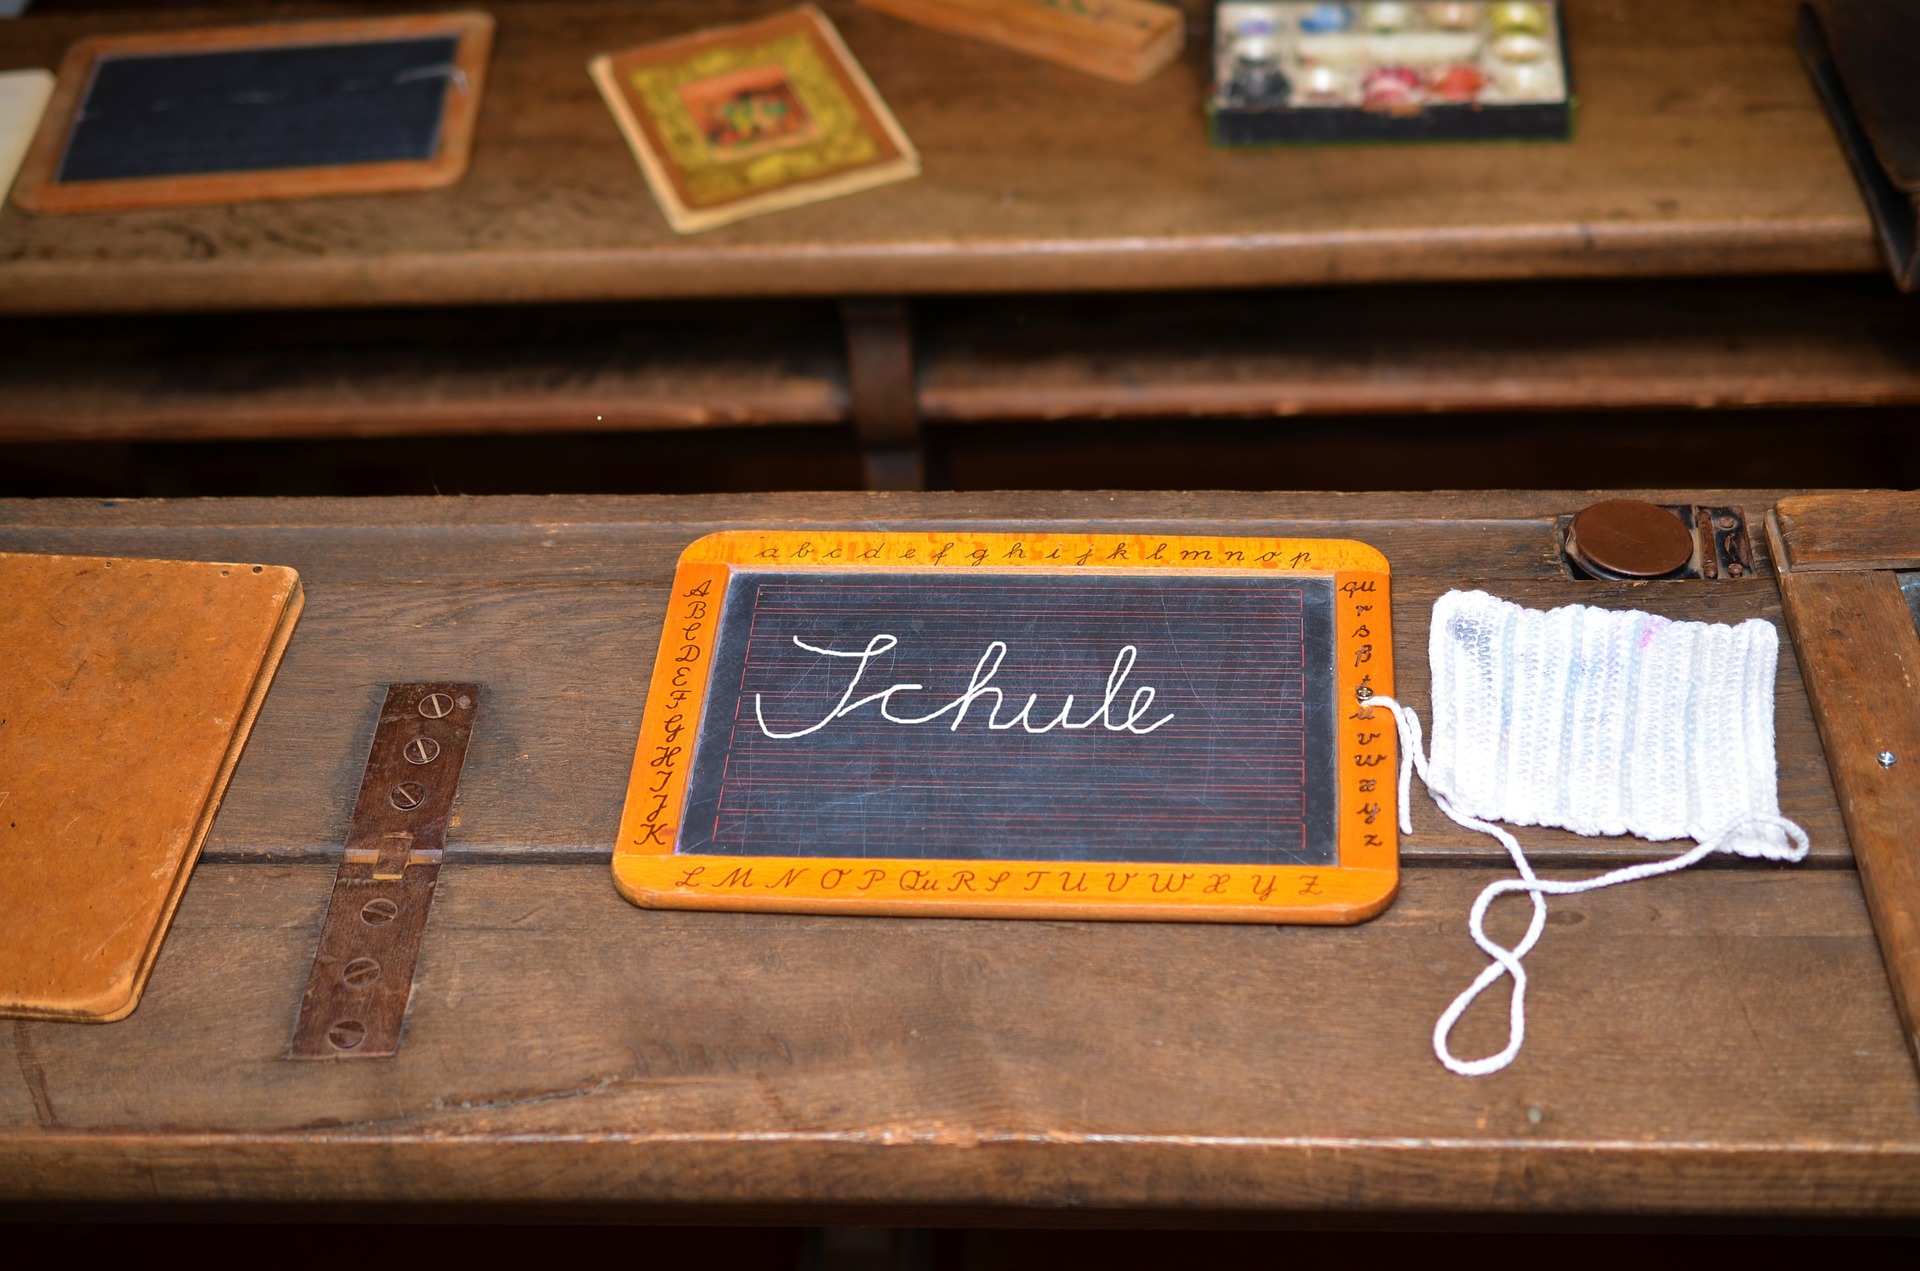 a b c d e f g h i j k l m n o p
qu
r
s
ß
t
u
v
w
x
y
z
A
B
C
D
E
F
G
H
I
J
K
L M N O P Qu R S T U V W X Y Z
Schule